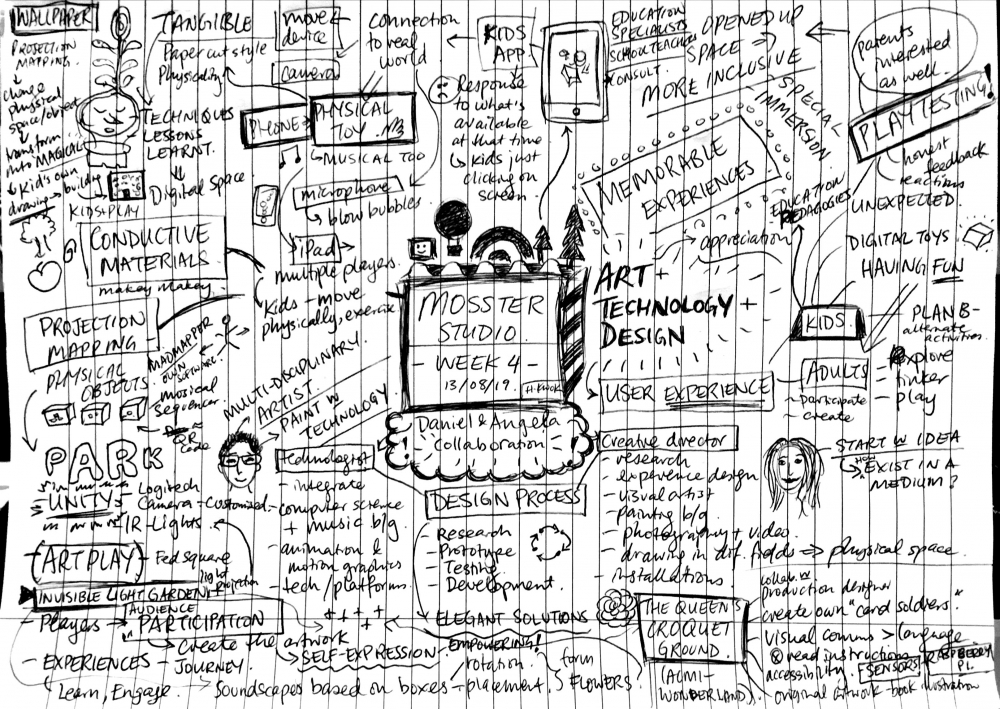 WALLPAPER
PROJECTION
MAPPING.
change
physical
space/object
transform
into MAGICAL
Kid's own
drawing → building
KIDS PLAY
TANGIBLE
Paper cut style
Physicality
TECHNIQUES
LESSONS
LEARNT.
Digital Space
CONDUCTIVE
MATERIALS
makey makey
PROJECTION
MAPPING
MADMAPER
OWN
SOFTWARE.
PHYSICAL
OBJECTS.
musical
sequencer
QR
code
PARK
UNITY
Logitech
Camera - customized
IR-Lights
(ART PLAY) - Fed square
light
+ projection
INVISIBLE LIGHT GARDEN
- Players
AUDIENCE
PARTICIPATION
create the artwork
- EXPERIENCES - JOURNEY.
Learn, Engage.
SELF-EXPRESSION
Soundscapes based on boxes - placement,
rotation.
form
FLOWERS
move
device
camera
connection
to real
world
PHONE
PHYSICAL
TOY
MUSICAL TOO
microphone
blow bubbles
iPad
multiple players.
Kids - move
physically, exercise
KIDS
APP.
Response
to what's
available
at that time
↳ kids just
clicking on
screen
MULTI-DISCIPLINARY
ARTIST.
PAINT W
TECHNOLOGY
MOSSTER
STUDIO.
- WEEK 4 -
13/08/19.
H. KWOK
Daniel & Angela
collaboration
technologist
- integrate
- computer science
+ music b/g.
- animation &
motion graphics
- tech/platforms.
DESIGN PROCESS
- Research
- Prototype
- Testing
- Development
ELEGANT SOLUTIONS
EMPOWERING!
EDUCATION
SPECIALISTS
SCHOOL TEACHERS
CONSULT.
OPENED UP
SPACE ⇒
MORE INCLUSIVE
SPECIAL
IMMERSION
MEMORABLE
EXPERIENCES
→ appreciation
EDUCATION
PEDAGOGIES
parents
interested
as well.
PLAYTESTING!
honest
feedback
reactions
UNEXPECTED.
DIGITAL TOYS
HAVING FUN
ART +
TECHNOLOGY +
DESIGN
KIDS.
PLAN B-
alternate
activities.
USER EXPERIENCE
ADULTS
- participate
- create
- Explore
- tinker
- play
Creative director
- research
- experience design
- visual artist
- painting b/g.
- photography + video.
- drawing in dif. fields ⇒ physical space.
- installations.
START W IDEA
HOW
EXIST IN A
MEDIUM?
THE QUEEN'S
CROQUET
GROUND.
(ACMI-
WONDERLAND)
collab. w
production designer
create own "card soldiers."
visual comms > language
read instructions
accessibility.
SENSORS
RASPBERRY
PI.
original artwork - book illustration